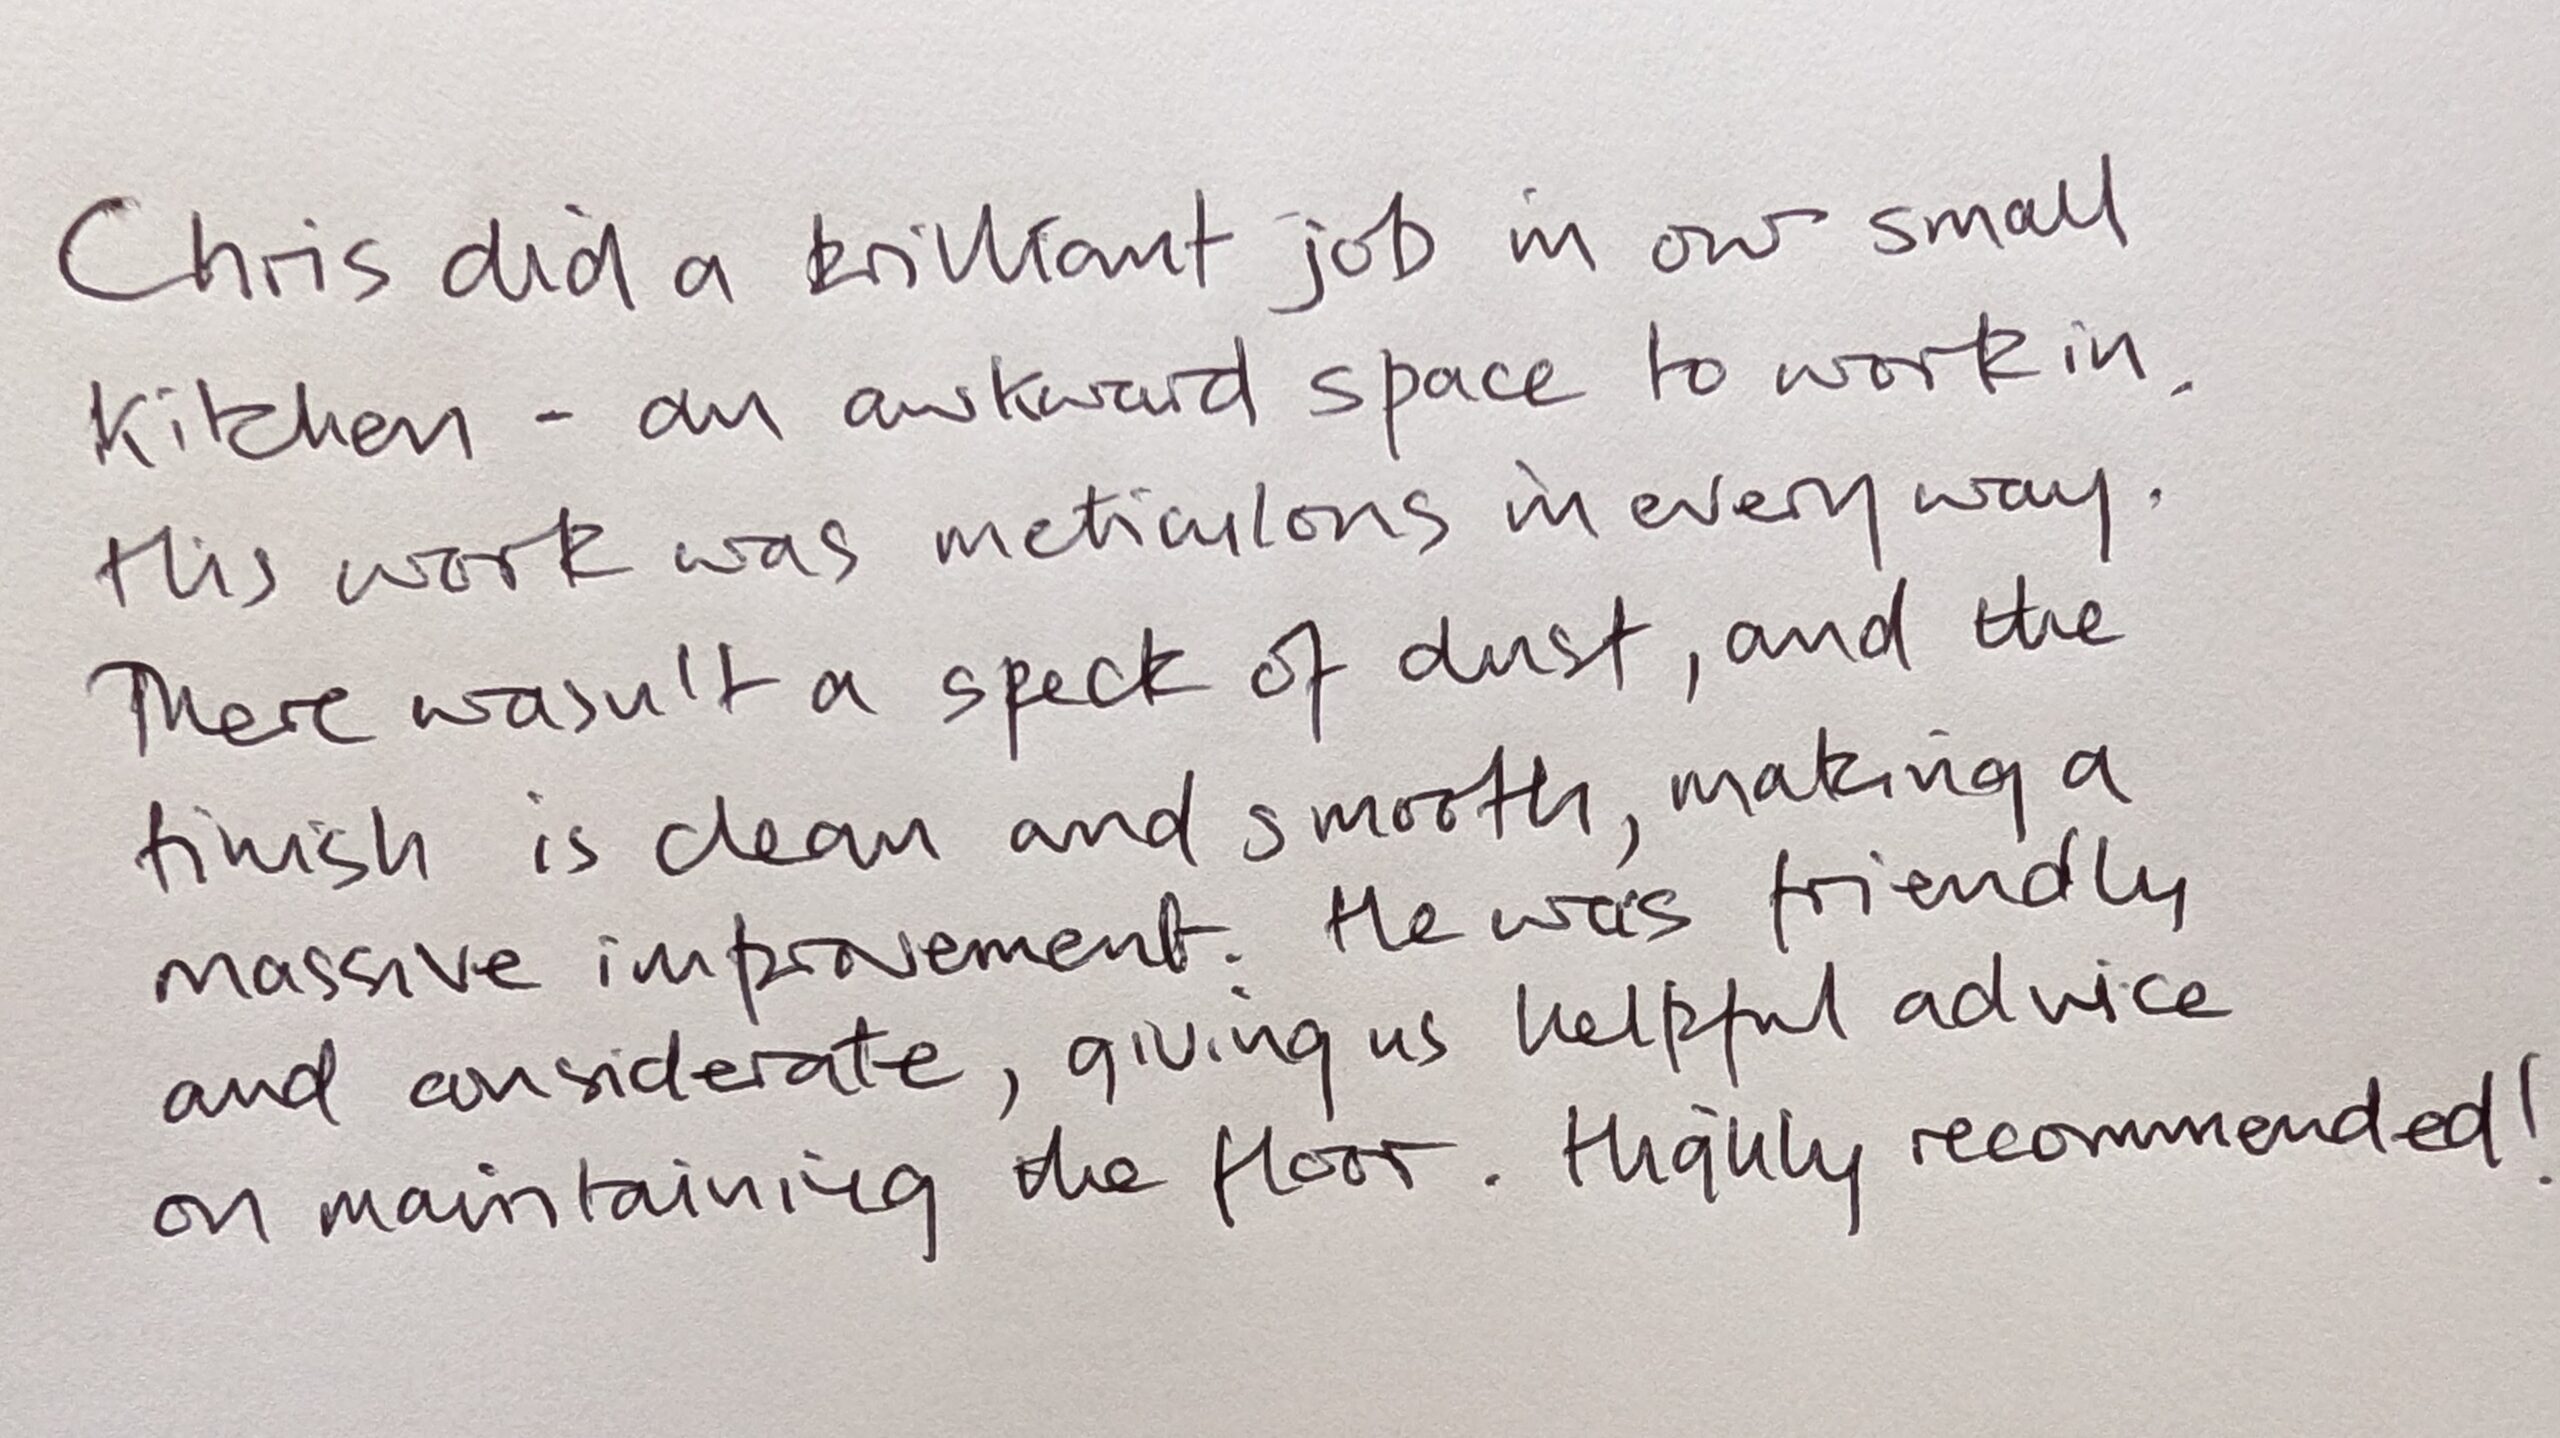 Chris did a brilliant job in our small
kitchen - an awkward space to work in.
His work was meticulous in every way.
There wasn't a speck of dust, and the
finish is clean and smooth, making a
massive improvement. He was friendly
and considerate, giving us helpful advice
on maintaining the floor. Highly recommended!